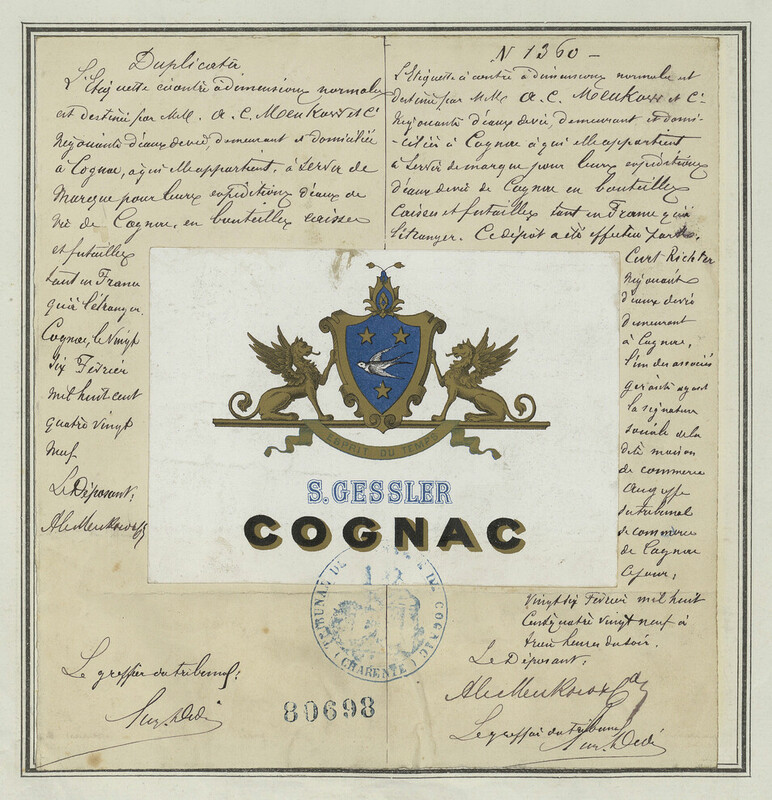 Duplicata
L'Etiquette ci contre à dimensions normales
est destinée par M.M. A. C. Meukow et Cie
Négociants d'eaux de vie, demeurant et domiciliés
à Cognac, à qui elle appartient, à servir de
Marque pour leurs expéditions d'eaux de
vie de Cognac, en bouteilles caisses
et futailles
tant en France
qu'à l'étranger.
Cognac, le Vingt
six Février
mil huit cent
quatre vingt
neuf
Le Déposant,
A. C. Meukow
Le greffier du tribunal,
N 1360 -
L'Etiquette ci contre à dimensions normales est
destinée par M.M. A. C. Meukow et Cie
Négociants d'eaux de vie, demeurant et domi-
-ciliés à Cognac à qui elle appartient
à servir de marque pour leurs expéditions
d'eaux de vie de Cognac en bouteilles
Caisses et futailles tant en France qu'à
l'étranger. Ce dépôt a été effectué par
Curt Richter
Négociant
d'eaux de vie
demeurant
à Cognac,
l'un des associés
gérants ayant
la signature
sociale de la
dite maison
de commerce
au greffe
du tribunal
de commerce
de Cognac
ce jour,
Vingt six Février mil huit
Cent quatre vingt neuf à
heures du soir.
Le Déposant,
A. C. Meukow
Le greffier du tribunal
ESPRIT DU TEMPS
S. GESSLER
COGNAC
TRIBUNAL DE DE COGNAC
(CHARENTE)
80698